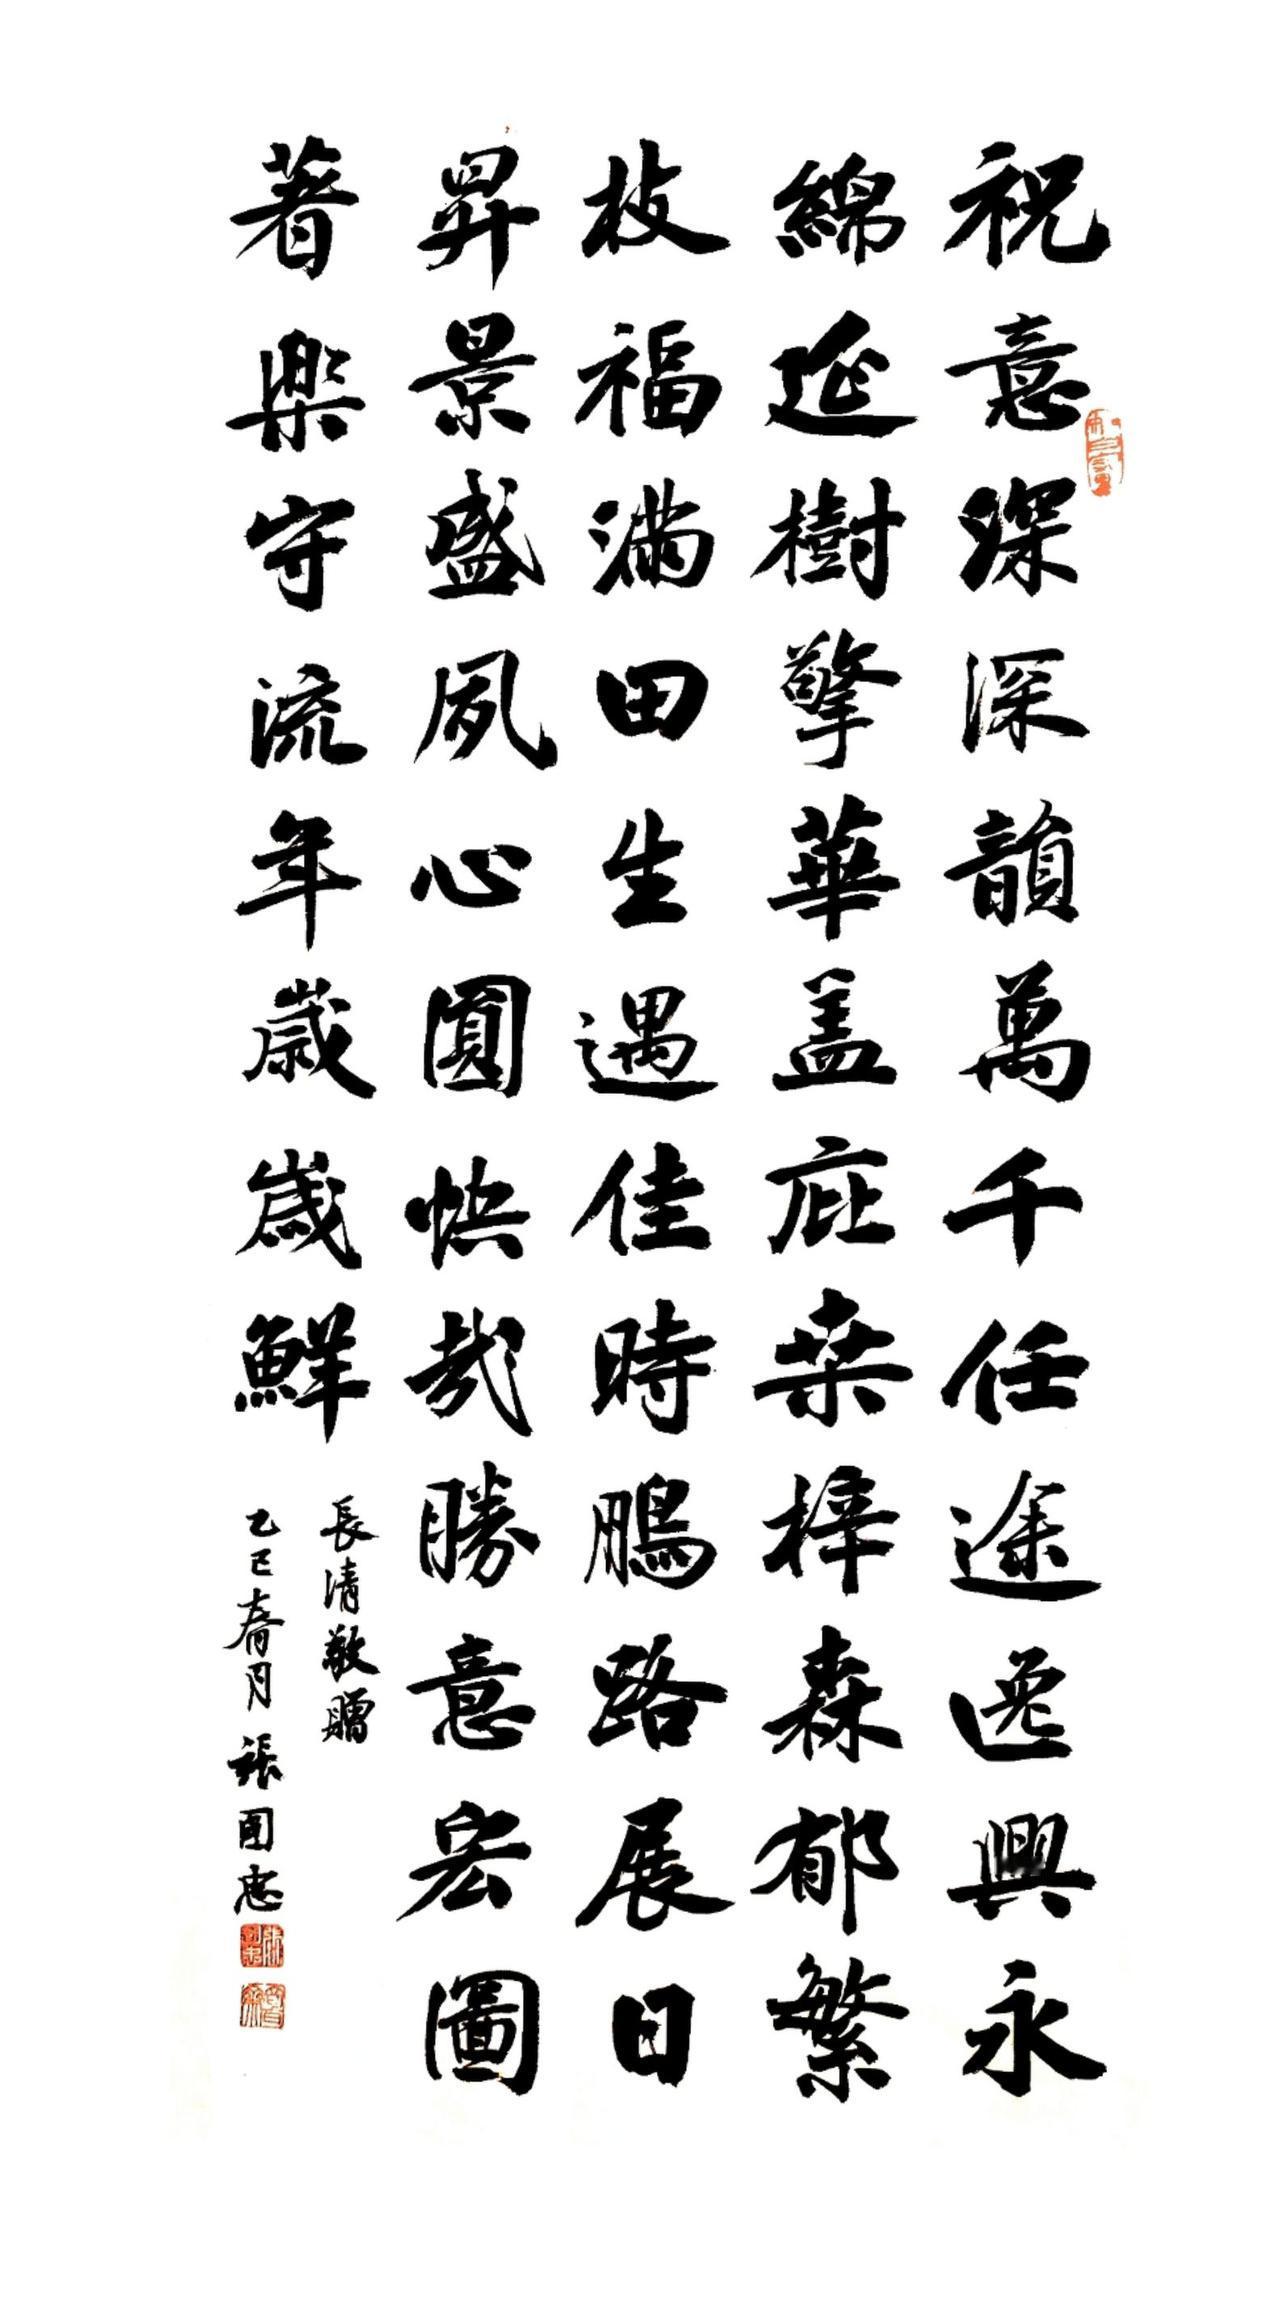 祝意琛深韻萬千任途逸興永
綿延樹擎華蓋庇桑梓森郁繁
枝福滿田生遇佳時鵬路展日
昇景盛夙心圓快哉勝意宏圖
著樂守流年歲歲鮮
長清敬贈
乙巳春月張國忠